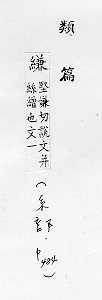 類篇
縑
堅嫌切說文并
絲繒也文一
(糸部·P484)